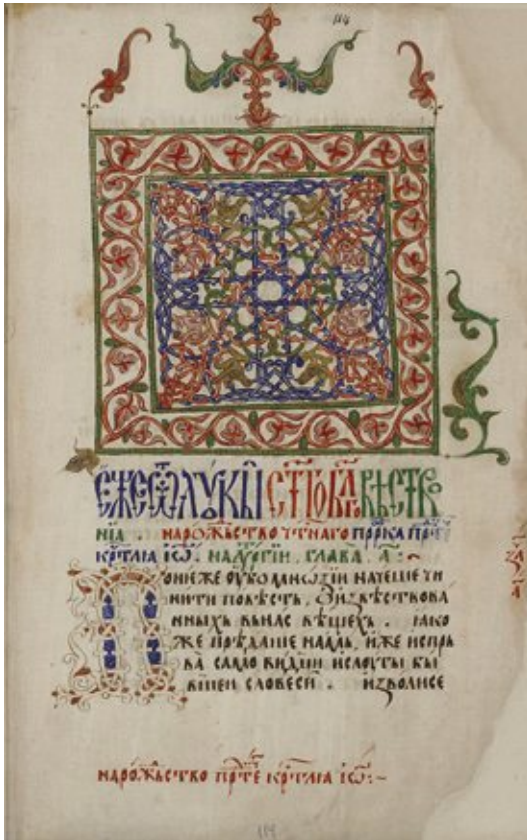 114
є́же ѿ лѹкы ст҃го бл҃говѣство
нїа. нарож̾ьство чт҇наго пр҇рка пр҇ѣт
кр҇тлїа іѡ҃. на лѵ̈рги̂и. глава. а҃.
Понѥже ѹбо мнѡѕїи начеше чи
нити повѣсть, ѡ извѣствова
нныхь вь нас вещехь. ꙗко
же прѣдаше намь, иже испрь
ва само видци и слѹгы бы
вшеи словеси. изволисе
нарож̾ьство пр҇тѣ кр҇тлїа іѡ҃:~
114